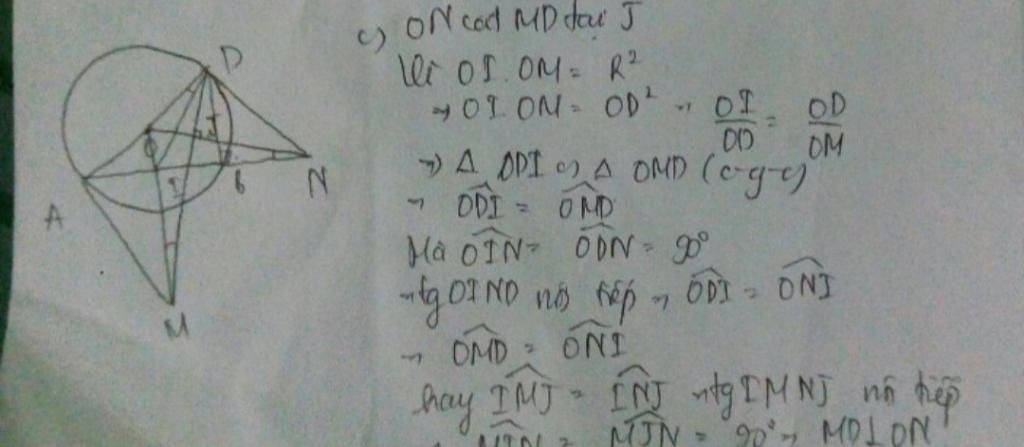 c) ON cắt MD tại J
Vì OI.OM = R²
→ OI.OM = OD² → OI/OD = OD/OM
→ Δ ODI ∽ Δ OMD (c-g-c)
→ ODI = OMD
Mà OIN = ODN = 90°
→ tg OIND nội tiếp → ODI = ONI
→ OMD = ONI
hay IMJ = INJ → tg IMNJ nội tiếp
→ MIN = MJN = 90° → MD⊥ON
D
O
J
I
B
N
A
M